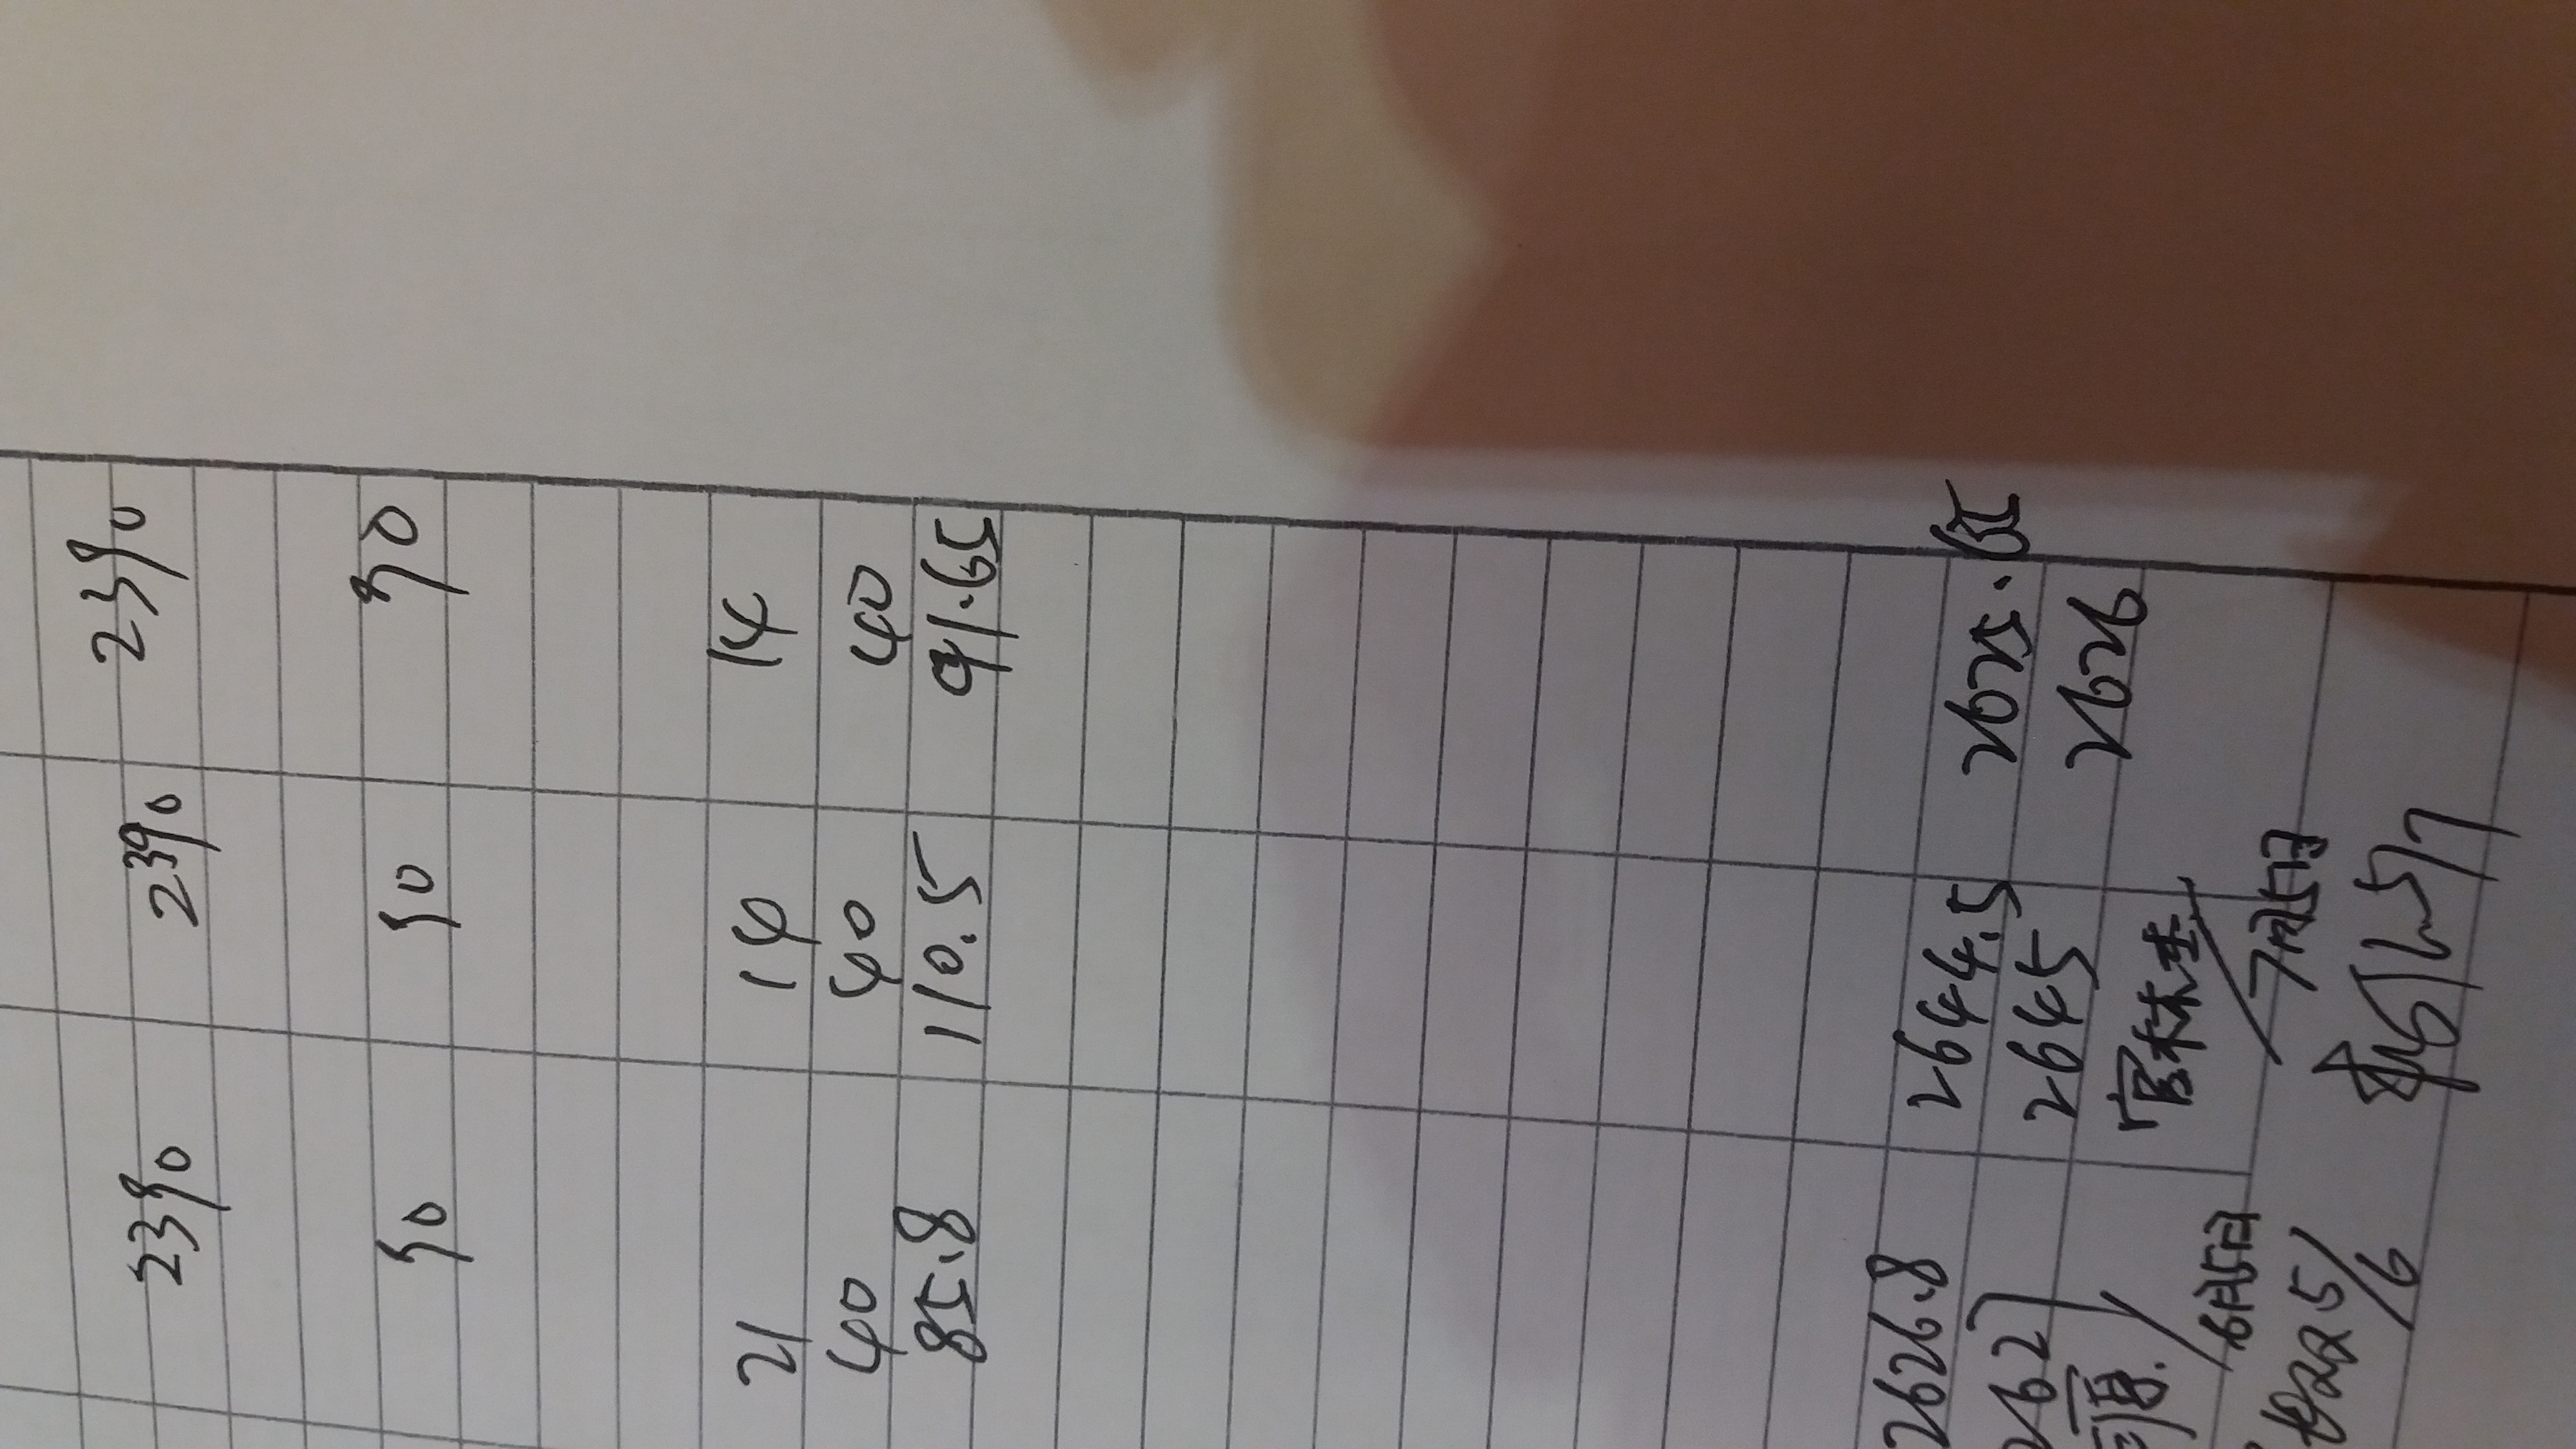 2390 2390 2390
90 90 90
21 14 14
40 40 40
85.8 110.5 91.65
2626.8 2644.5 2625.65
2627 2645 2626
官林杰
6月5日 7月5日
5/6 5/7